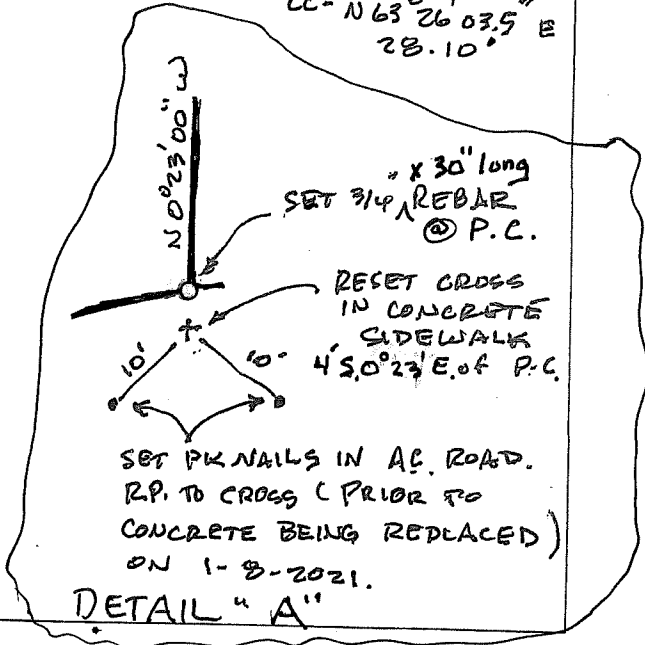 LC- N 63 26 03.5" E
28.10'
N 0°23'00" W
" x 30" long
SET 3/4 ^ REBAR
@ P.C.
RESET CROSS
IN CONCRETE
SIDEWALK
4' S.0°23' E. of P.C.
10'
10'
SET PK NAILS IN AC. ROAD.
R.P. TO CROSS ( PRIOR TO
CONCRETE BEING REPLACED )
ON 1-8-2021.
DETAIL "A"